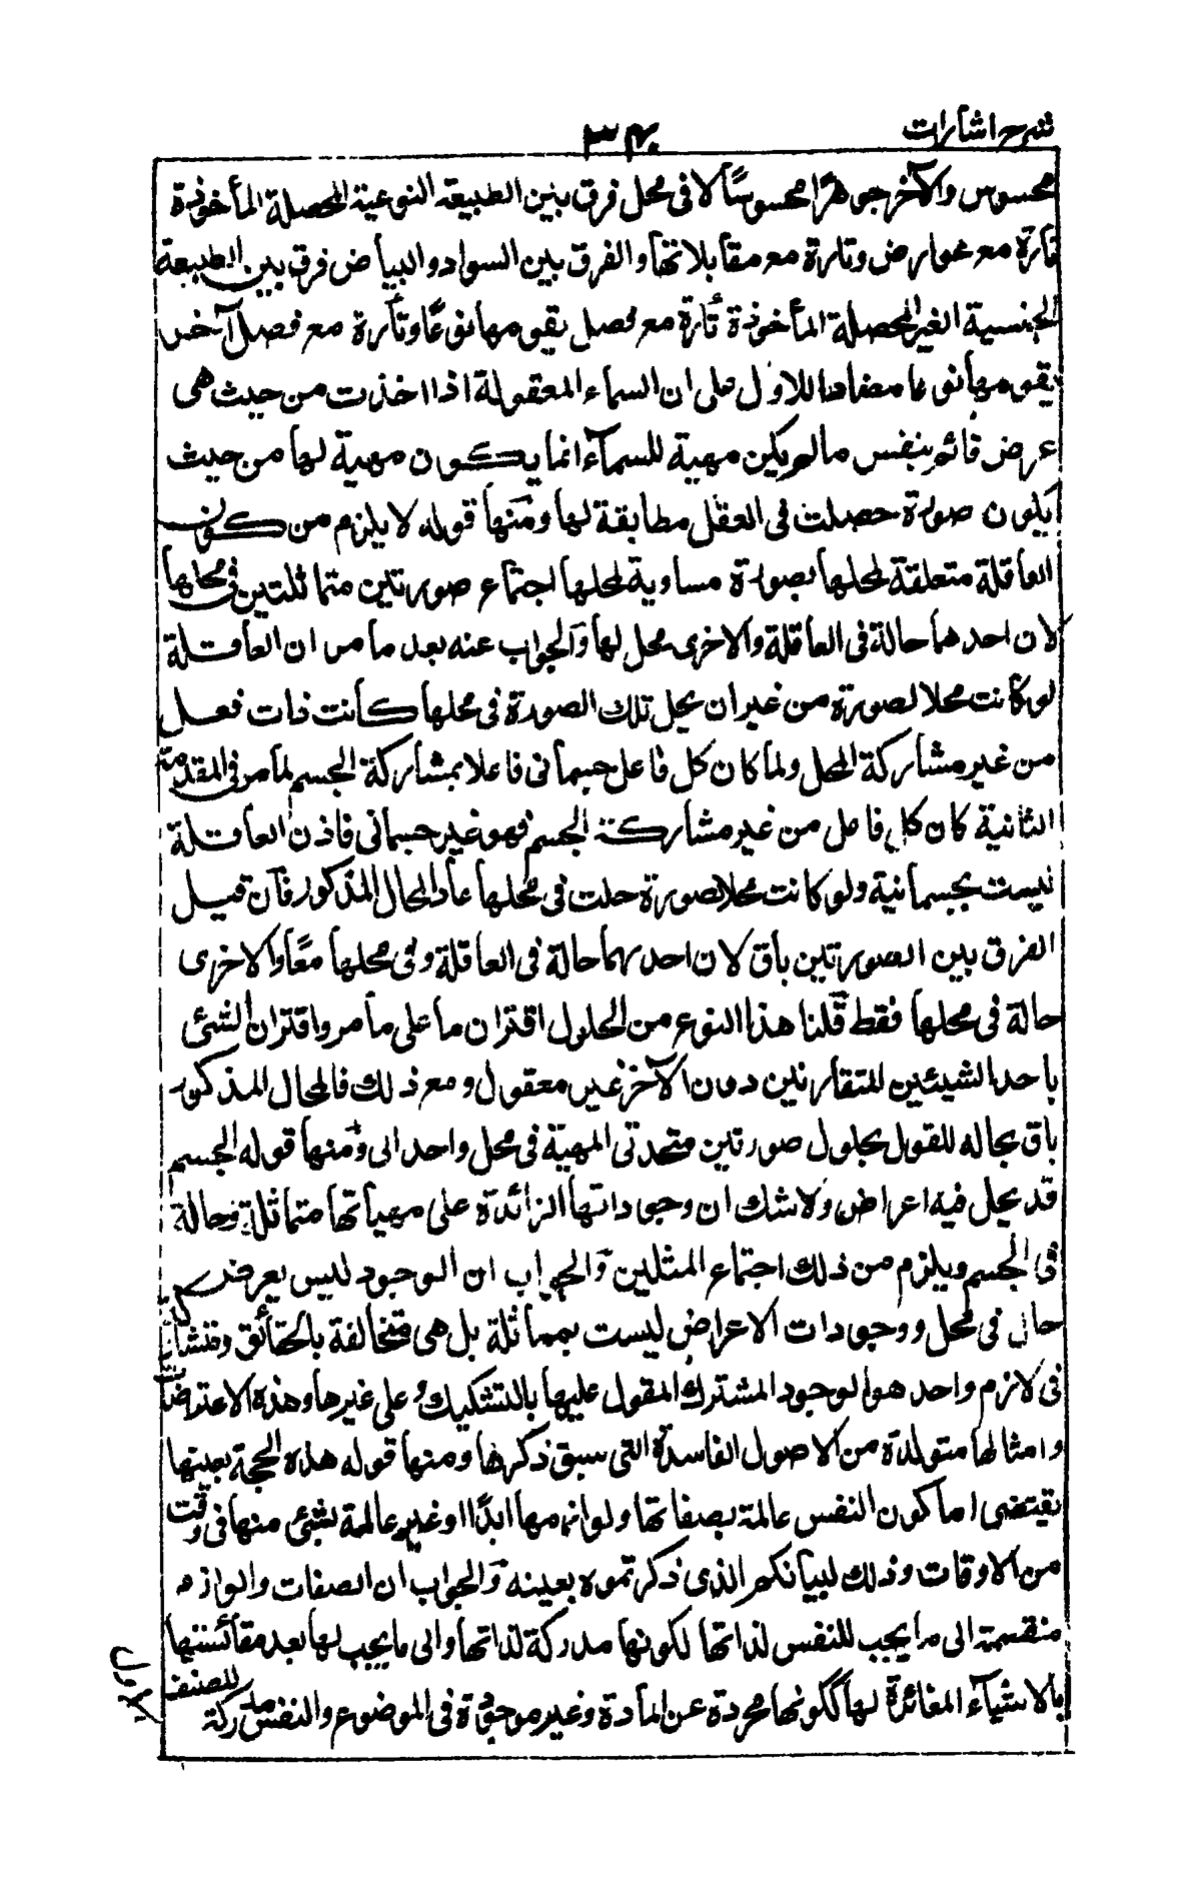 شرح اشارات
محسوس والآخر جوهرًا محسوسًا لا فى محل فرق بين الطبيعة النوعية المحصلة المأخوذة
تارة مع عوارض وتارة مع مقابلاتها والفرق بين السواد والبياض فرق بين الطبيعة
الجنسية الغير المحصلة المأخوذة تارة مع فصل يقومها نوعًا وتارة مع فصل آخر
يقومها نوعا مضادا للاول على ان السماء المعقولة اذا اخذت من حيث هى
عرض قائم بنفس ما لم يكن مهية للسمآء انما يكون مهية لها من حيث
يكون صورة حصلت فى العقل مطابقة لها ومنها قوله لا يلزم من كون
العاقلة متعلقة لمحلها بصورة مساوية لمحلها اجتماع صورتين متماثلتين فى محلها
لان احدهما حالة فى العاقلة والاخرى محل لها والجواب عنه بعد ما مر ان العاقلة
لو كانت محلا لصورة من غير ان يحل تلك الصورة فى محلها كانت ذات فعل
من غير مشاركة المحل ولما كان كل فاعل جسمانى فاعلا بمشاركة الجسم لما مر فى المقدمة
الثانية كان كل فاعل من غير مشاركة الجسم فهو غير جسمانى فاذن العاقلة
ليست بجسمانية ولو كانت محلا لصورة حلت فى محلها عاد المحال المذكور فان قيل
الفرق بين الصورتين باق لان احدىهما حالة فى العاقلة وفى محلها معًا والاخرى
حالة فى محلها فقط قلنا هذا النوع من الحلول اقتران ما على ما مر واقتران الشئ
باحد الشيئين المتقارنين دون الآخر غير معقول ومع ذلك فالمحال المذكور
باق بحاله للقول بحلول صورتين متحدتى المهية فى محل واحد ومنها قوله الجسم
قد يحل فيه اعراض ولا شك ان وجوداتها الزائدة على مهياتها متماثلة وحالة
فى الجسم ويلزم من ذلك اجتماع المثلين والجواب ان الوجود ليس بعرض
حال فى محل ووجودات الاعراض ليست بمماثلة بل هى متخالفة بالحقائق
فى لازم واحد هو الوجود المشترك المقول عليها بالتشكيك وعلى غيرها وهذه الاعتراضات
وامثالها متولدة من الاصول الفاسدة التى سبق ذكرها ومنها قوله هذه الحجة بعينها
يقتضى اما كون النفس عالمة بصفاتها ولوازمها ابدًا او غير عالمة بشئ منها فى وقت
من الاوقات وذلك لبيانكم الذى ذكرتموه بعينه والجواب ان الصفات واللوازم
منقسمة الى ما يجب للنفس لذاتها لكونها مدركة لذاتها والى ما يجب لها بعد مقائستها
بالاشيآء المغائرة لها ككونها مجردة عن المادة وغير موجودة فى الموضوع والنفس مدركة
للصنف
الاول